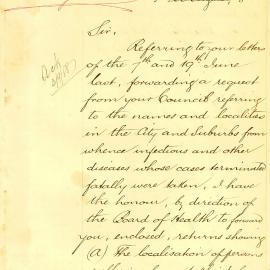 Sir,
Referring to your letters
of the 7th and 19th June
last, forwarding a request
from your Council referring
to the names and localities
in the City and Suburbs from
whence infectious and other
diseases whose cases terminated
fatally were taken, I have
the honour, by direction of
the Board of Health to forward
you, enclosed, returns showing
(A) The localisation of persons